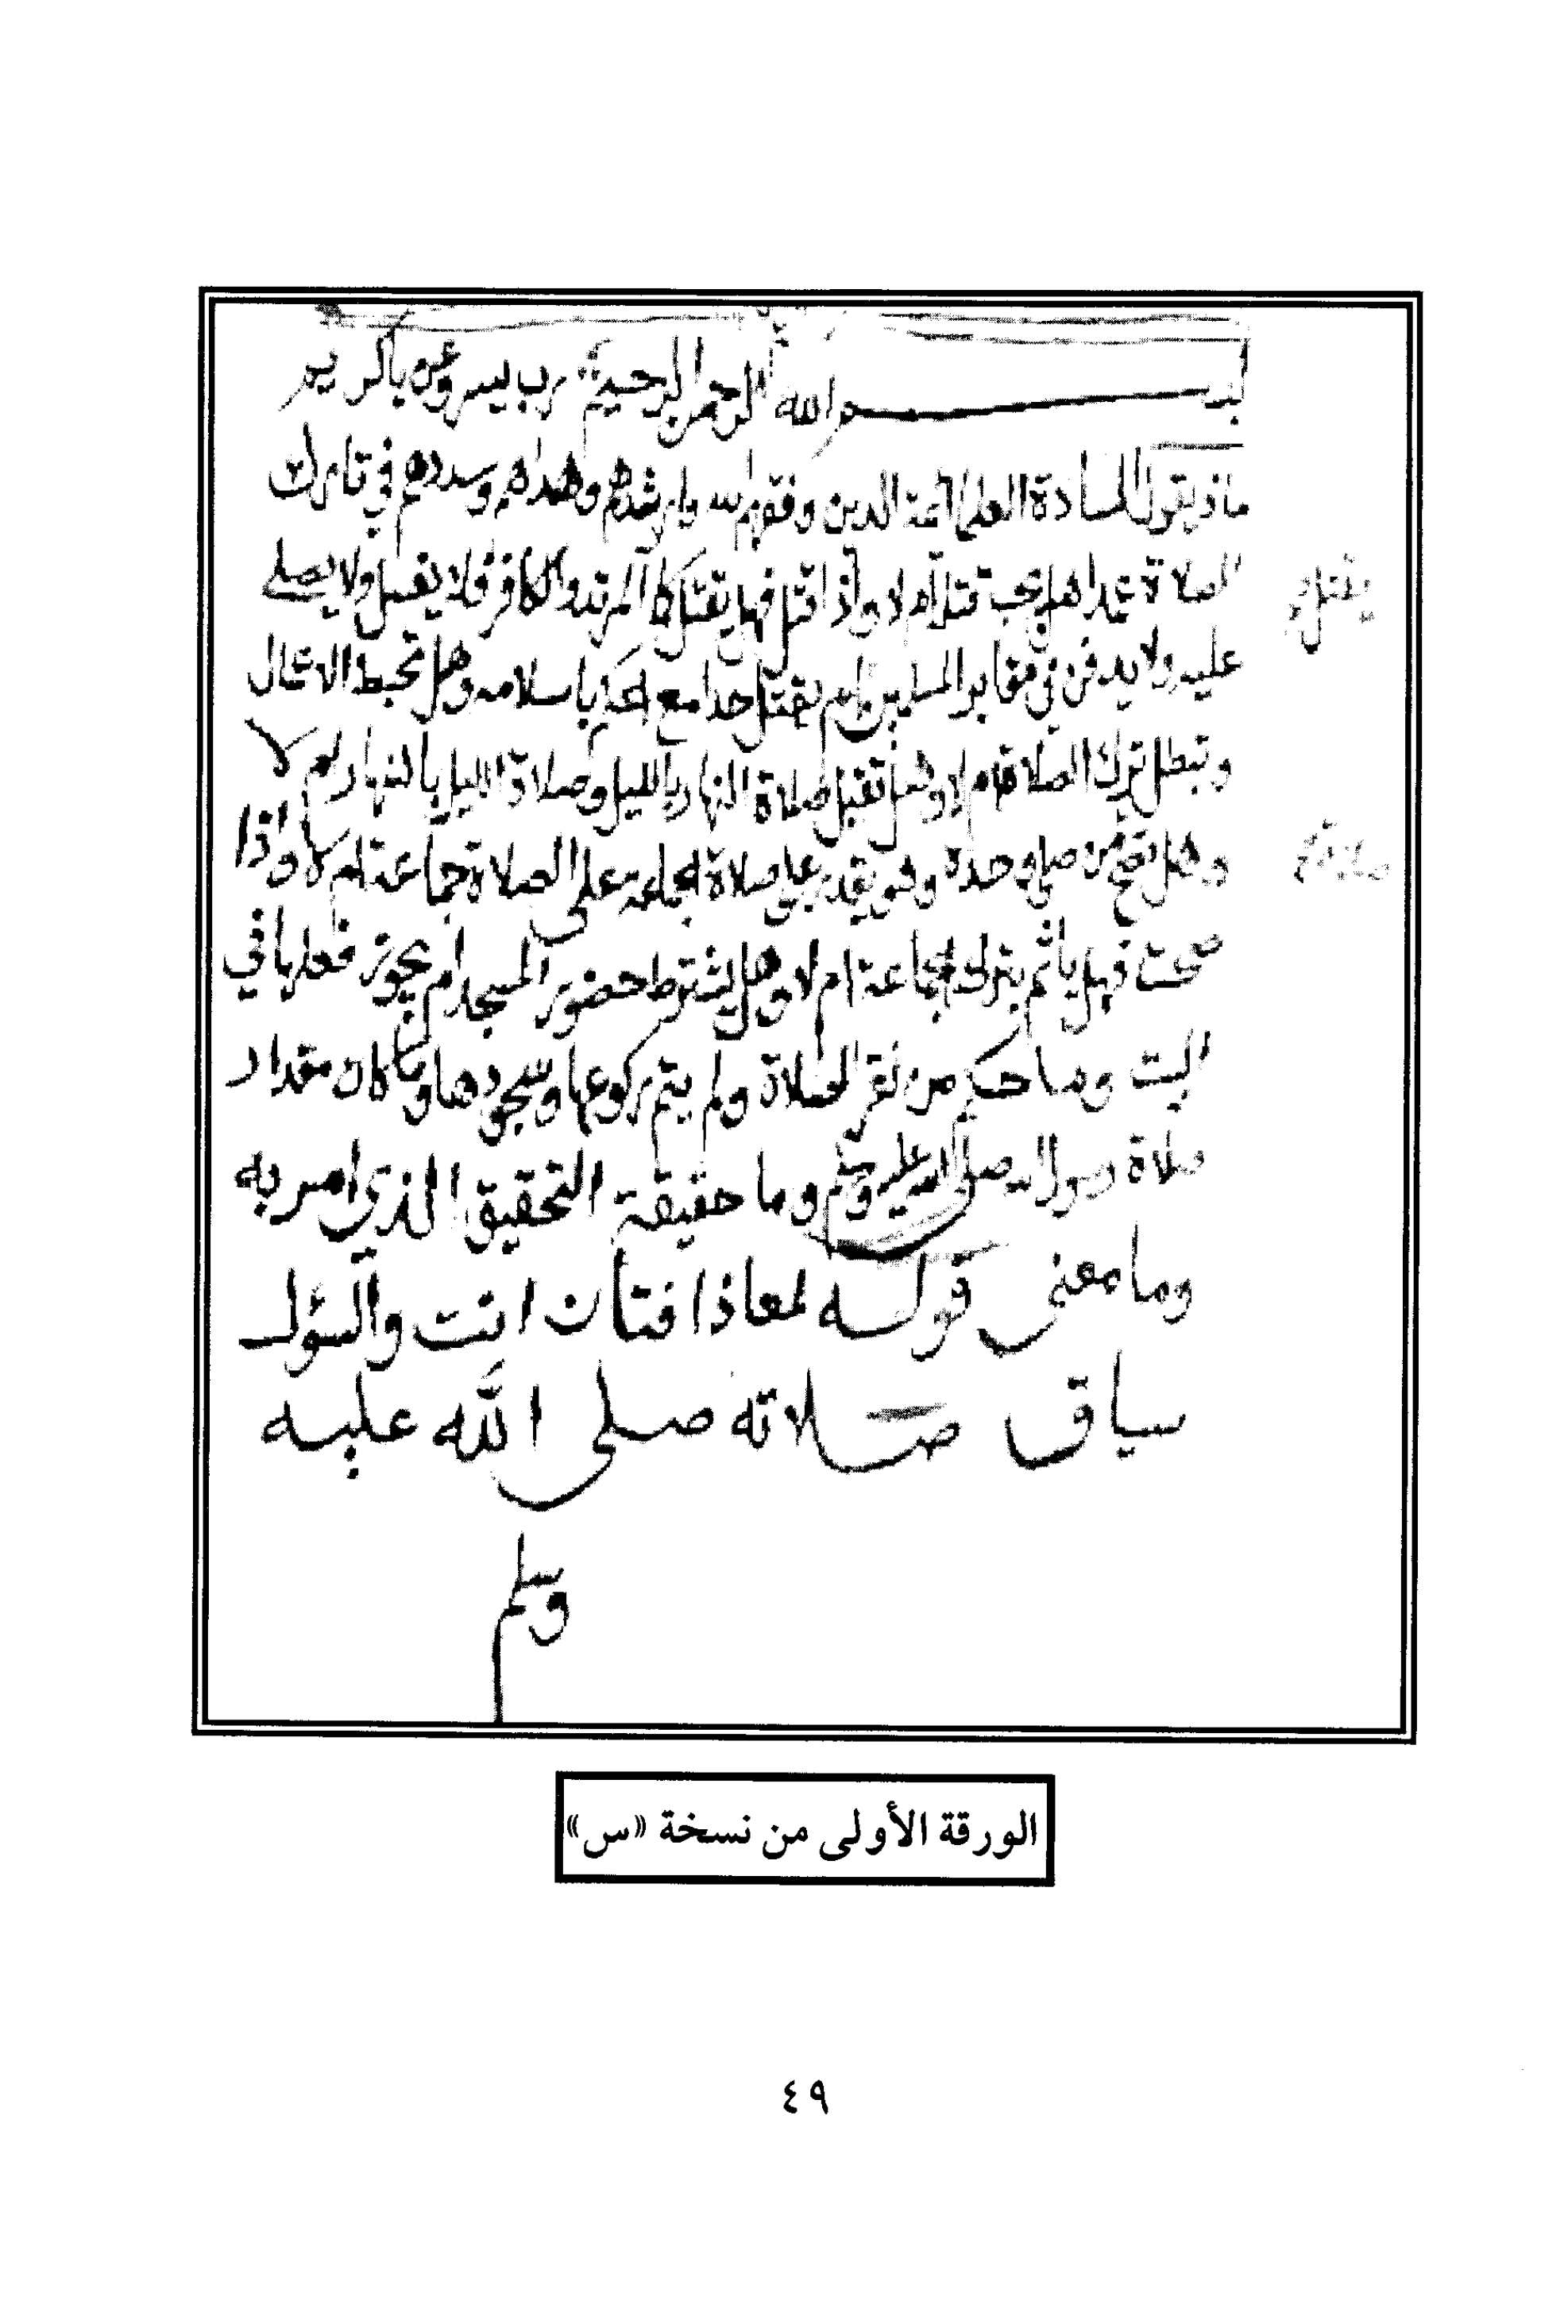 بسم الله الرحمن الرحيم رب يسر وعن ياكريم
ماذ يقول السادة العلما ائمة الدين وفقهم الله وارشدهم وهداهم وسددهم في تارك
الصلاة عمدا هل يجب قتله ام لا واذا قتل فهل يقتل كما المرتد والكافر فلا يغسل ولا يصلى
يقتل
عليه ولا يدفن في مقابر المسلمين ام يقتل حدا مع الحكم باسلامه وهل تحبط الاعمال
وتبطل بترك الصلاة ام لا وهل تقبل صلاة النهار بالليل وصلاة الليل بالنهار ام لا
وهل تصح من صلى وحده وهو يقدر على صلاة الجماعة على الصلاة جماعة ام لا واذا
صلاة
صحت فهل ياثم بترك الجماعة ام لا وهل يشترط حضور المسجد ام يجوز فعلها في
البيت وما حكم من نقر الصلاة ولم يتم ركوعها وسجودها وما كان مقدار
صلاة رسول الله صلى الله عليه وسلم وما حقيقة التحقيق الذي امر به
وما معنى قوله لمعاذ افتان انت والسؤل
سياق صلاته صلى الله عليه
وسلم
الورقة الأولى من نسخة «س»
٤٩